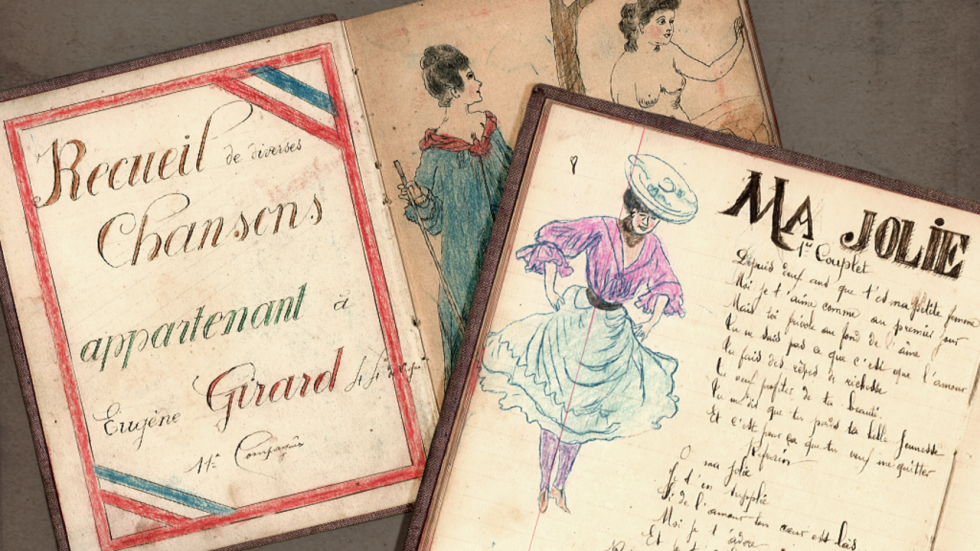 Recueil de diverses
Chansons
appartenant à
Eugène Girard
11e Compagnie
MA JOLIE
1er Couplet
Depuis deux ans que t'es ma petite femme
Moi je t'aime comme au premier jour
Mais toi frivole au fond de l'âme
Tu ne sais pas ce que c'est que l'amour
Tu fais des rêves de richesse
Tu veux profiter de ta beauté
Tu m'dis que tu perds ta belle jeunesse
Et c'est pour ça que tu veux me quitter
Refrain
O ma jolie
Je t'en supplie
Si de l'amour ton cœur est las
Moi je t'adore
Et je